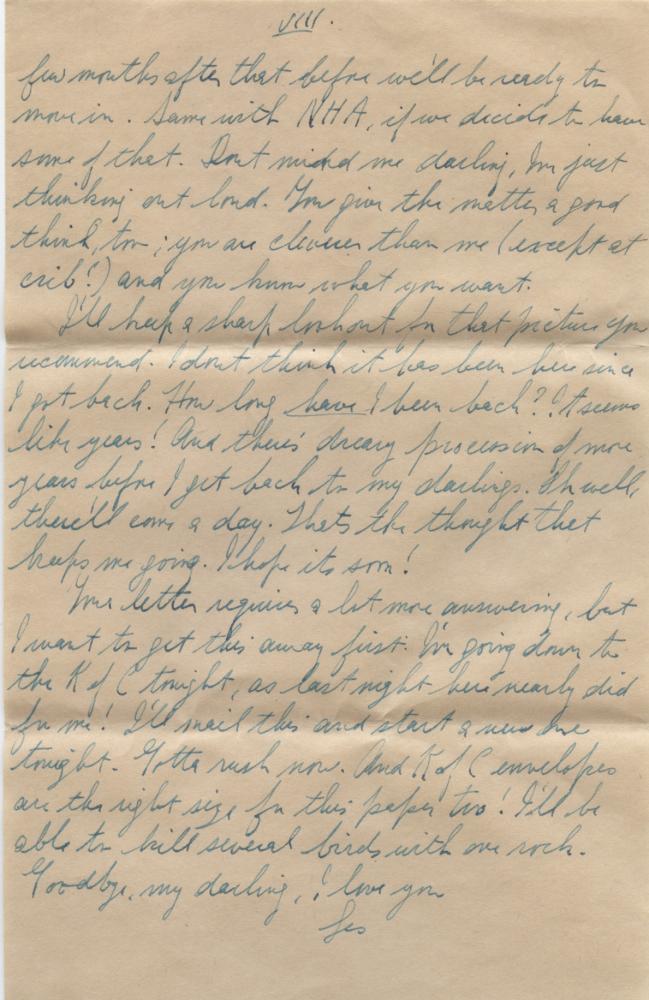 VIII.
few months after that before we'll be ready to
move in. Same with NHA, if we decide to have
some of that. Dont mind me darling, Im just
thinking out loud. You give the matter a good
think, too; you are cleverer than me (except at
crib!) and you know what you want.
I'll keep a sharp lookout for that picture you
recommend. I dont think it has been here since
I got back. How long have I been back? It seems
like years! And there's dreary procession of more
years before I get back to my darlings. Oh well,
there'll come a day. Thats the thought that
keeps me going. I hope its soon!
Your letter requires a lot more answering, but
I want to get this away first. I'm going down to
the K of C tonight, as last night here nearly did
for me! I'll mail this and start a new one
tonight. Gotta rush now. And K of C envelopes
are the right size for this paper too! I'll be
able to kill several birds with one rock.
Goodbye, my darling, I love you
Les